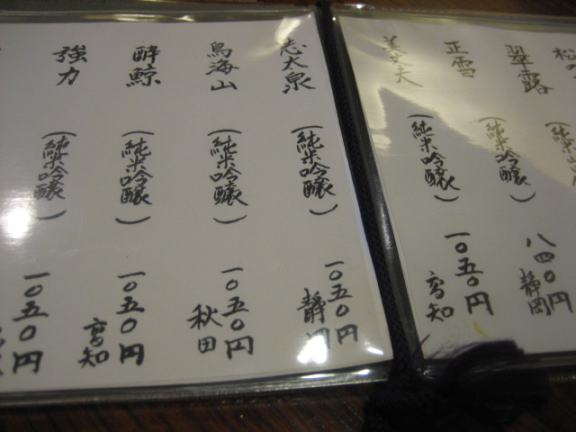 松
翠露
(純米
正雪
(純米吟醸)
八四〇円
静岡
美丈夫
(純米吟醸)
一〇五〇円
高知
志太泉
(純米吟醸)
一〇五〇円
静岡
鳥海山
(純米吟醸)
一〇五〇円
秋田
酔鯨
(純米吟醸)
一〇五〇円
高知
強力
(純米吟醸)
一〇五〇円